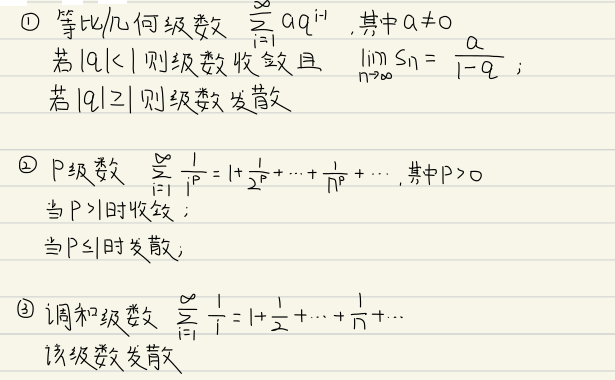 ① 等比/几何级数 ∑_{i=1}^{∞} aq^{i-1}，其中a≠0
若|q|<1则级数收敛且 lim_{n→∞} Sn = a/(1-q)；
若|q|≥1则级数发散
② P级数 ∑_{i=1}^{∞} 1/i^P = 1+1/2^P+…+1/n^P+…，其中P>0
当P>1时收敛；
当P≤1时发散；
③ 调和级数 ∑_{i=1}^{∞} 1/i = 1+1/2+…+1/n+…
该级数发散